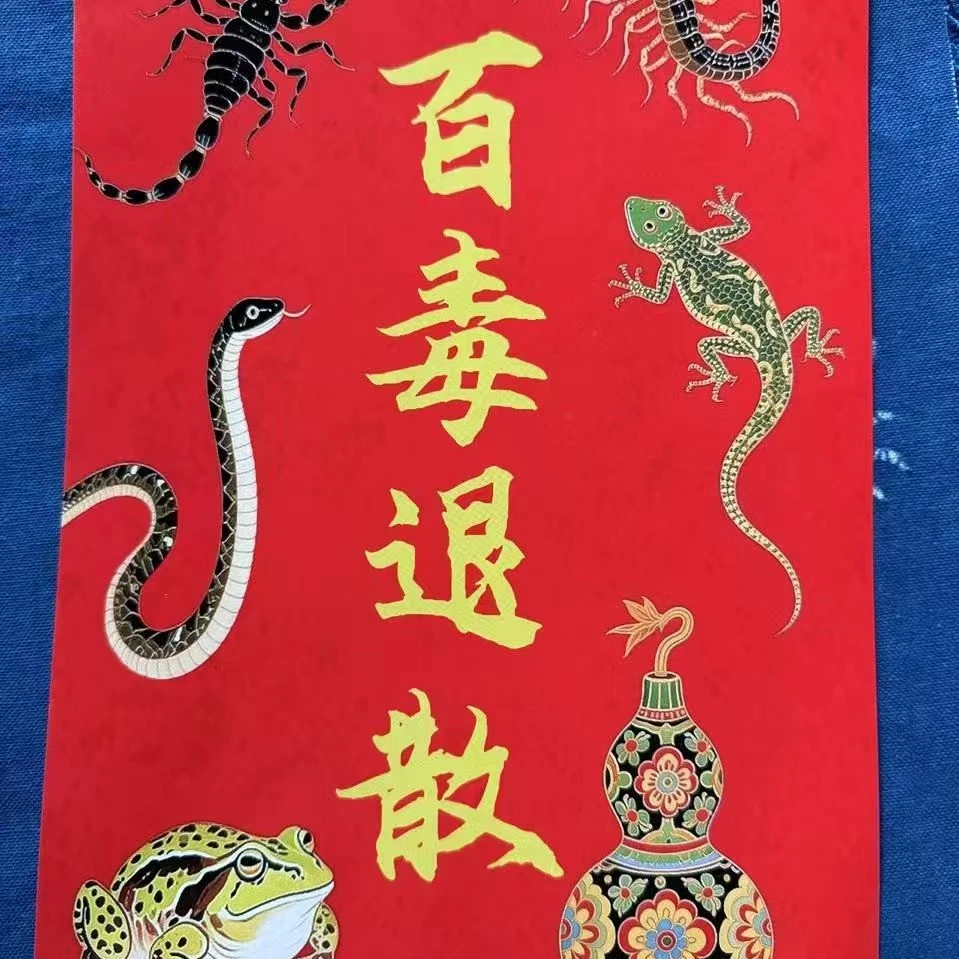 百毒退散